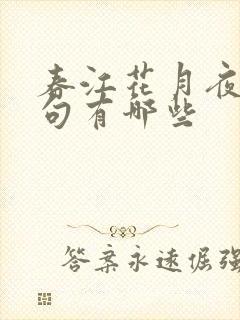 春江花月夜
句有哪些
答案永远倔强